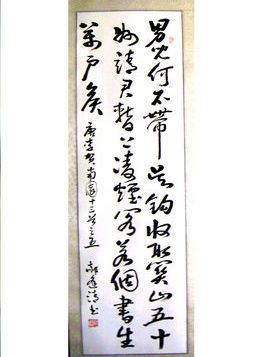 男兒何不帶吳鉤收取關山五十
州請君暫上凌煙閣若個書生
萬戶侯
唐李賀南園十三首之五
書